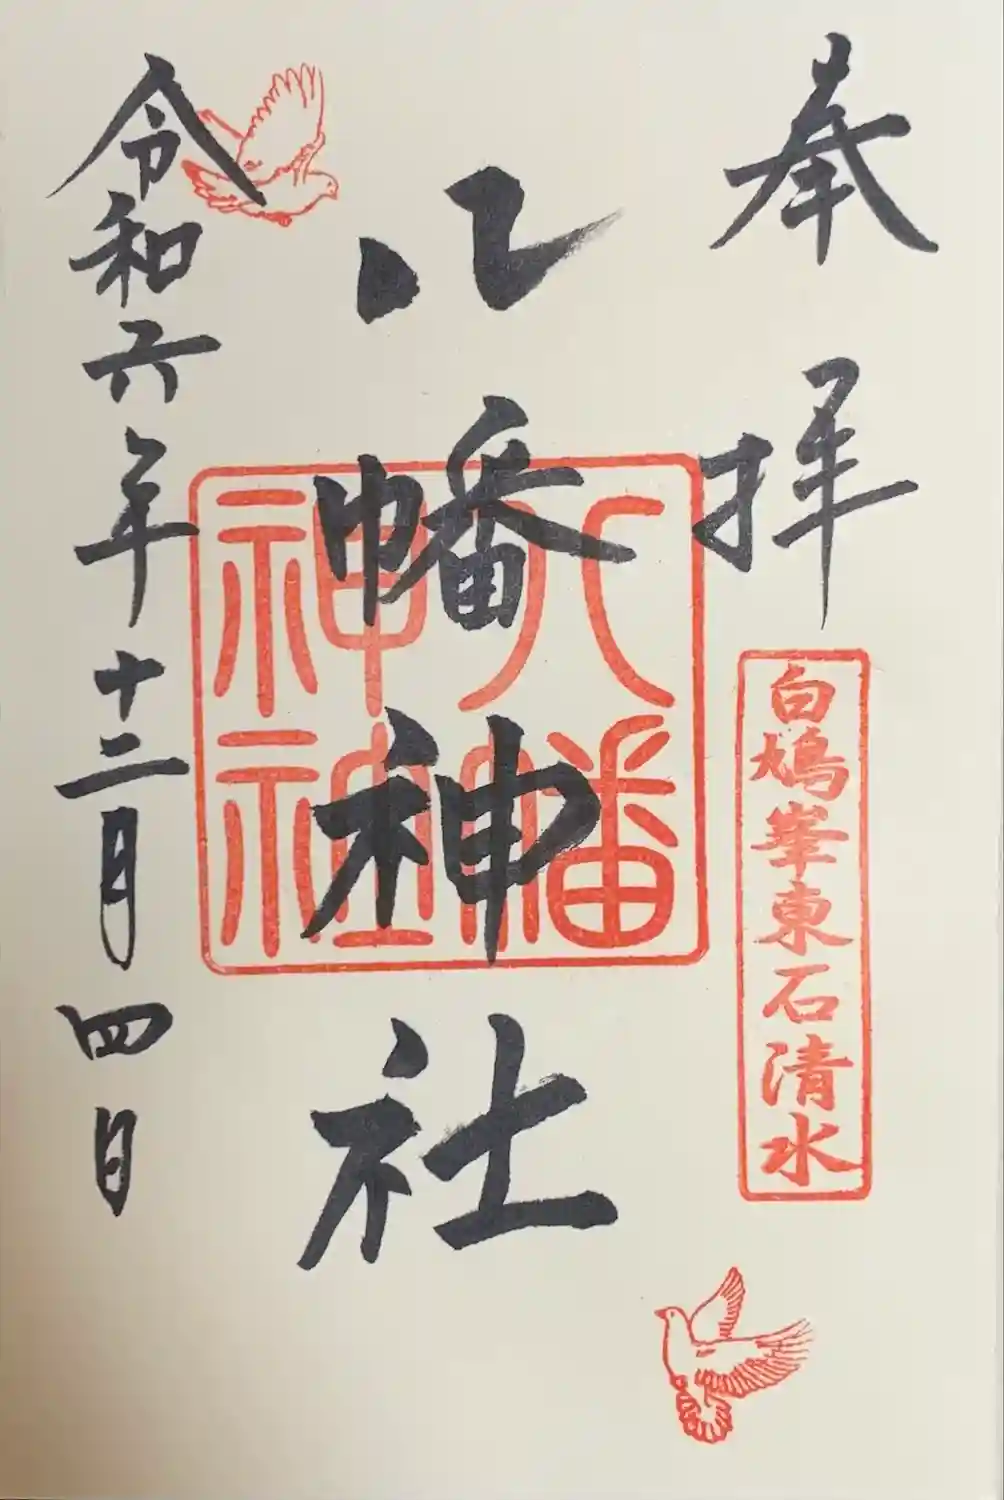 奉拝
白鳩峯東石清水
八幡神社
八幡
神社
令和六年十二月四日